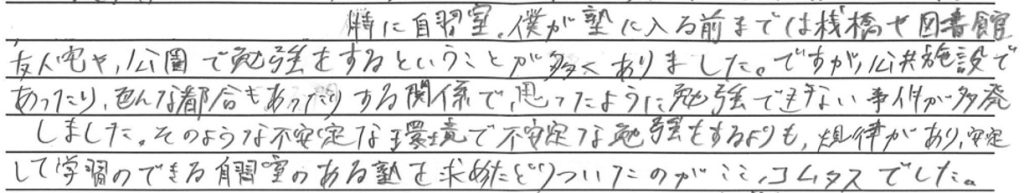 特に自習室。僕が塾に入る前までは桟橋や図書館
友人宅や,公園で勉強をするということが多くありました。ですが,公共施設で
あったり,色んな都合もあったりする関係で,思ったように勉強できない事件が多発
しました。そのような不安定な環境で不安定な勉強をするよりも,規律があり,安定
して学習のできる自習室のある塾を求めたどりついたのがここ,コムタスでした。